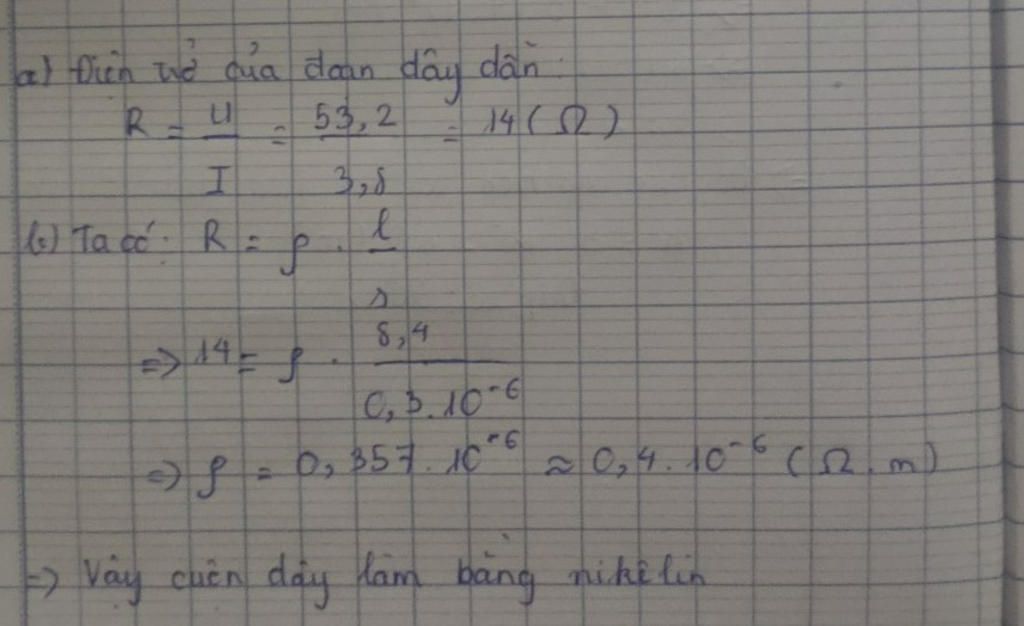 a) Điện trở của đoạn dây dẫn:
R = U / I = 53,2 / 3,8 = 14 (Ω)
b) Ta có: R = ρ . l / s
=> 14 = ρ . 8,4 / 0,3.10⁻⁶
=> ρ = 0,357.10⁻⁶ ≈ 0,4.10⁻⁶ (Ω.m)
=> Vậy cuộn dây làm bằng nikêlin